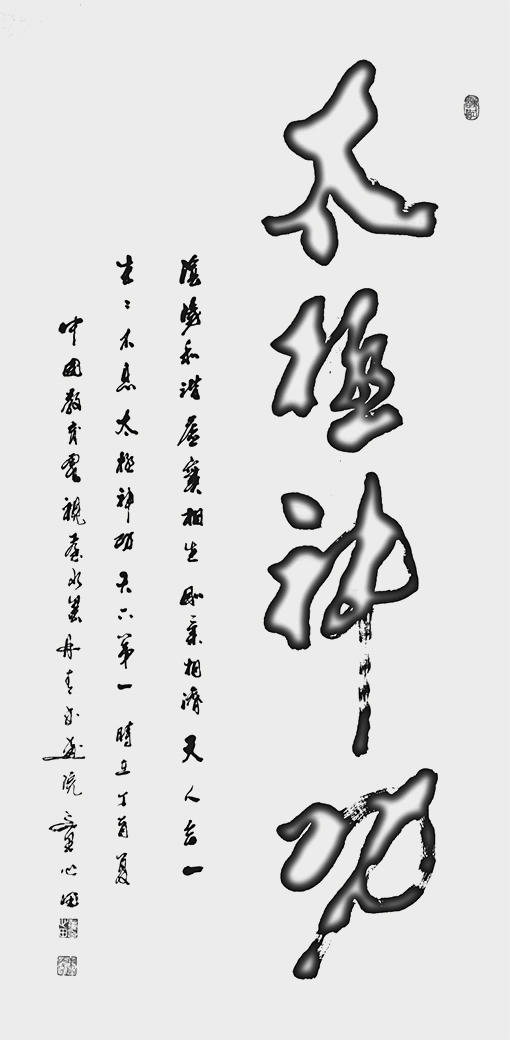 太極神功
陰陽和谐虛實相生剛柔相濟天人合一
生〻不息太極神功天下第一時在丁酉夏
中國教育電視臺水墨丹青书画院童心田